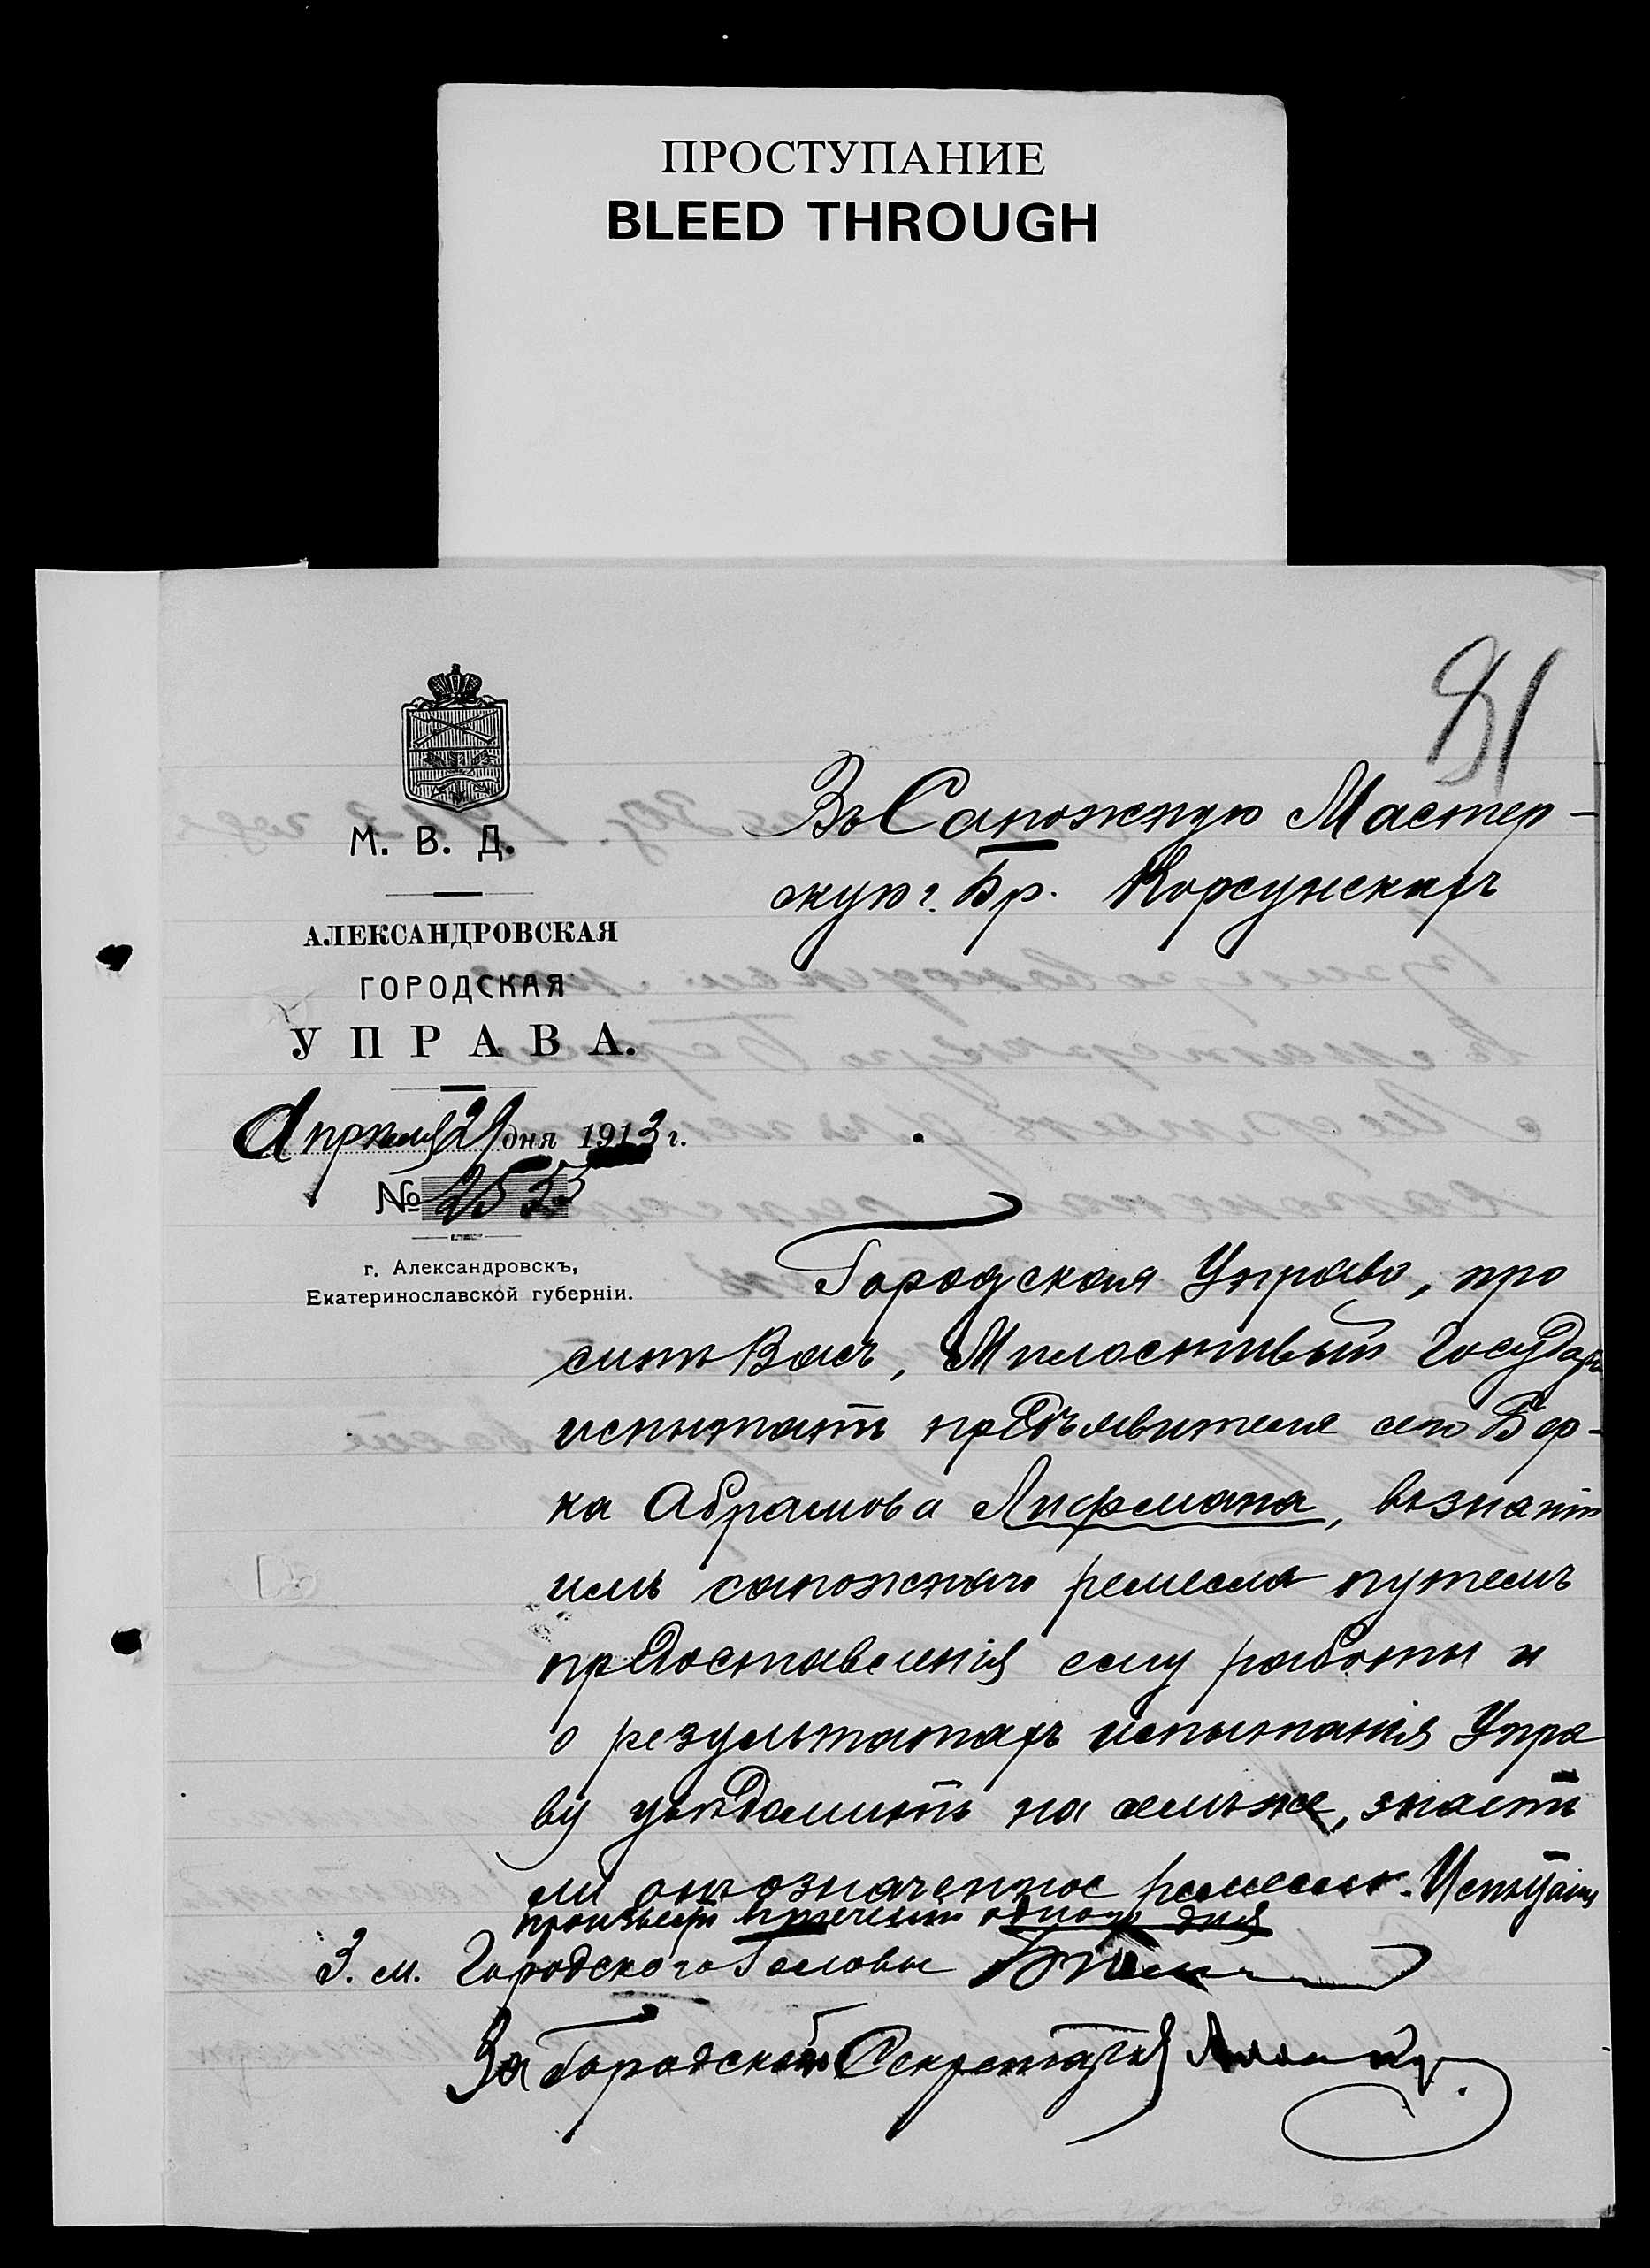 ПРОСТУПАНИЕ
BLEED THROUGH
81
М. В. Д.
АЛЕКСАНДРОВСКАЯ
ГОРОДСКАЯ
УПРАВА.
Апрѣля 29 дня 1913 г.
№ 2533
г. Александровскъ,
Екатеринославской губерніи.
Въ Сапожную Мастер-
скую г. Бр. Корсунскихъ
Городская Управа, про
ситъ Васъ, Милостивый Государь
испытать предъявителя сего Бер-
ка Абрамова Лифмана, въ знаніи
имъ сапожнаго ремесла путемъ
предоставленія ему работы и
о результатахъ испытанія Упра
ву увѣдомить на семъ же, знаетъ
ли онъ означенное ремесло. Испытанія
произвести втеченіи одного дня
З. м. Городского Головы
За Городского Секретаря